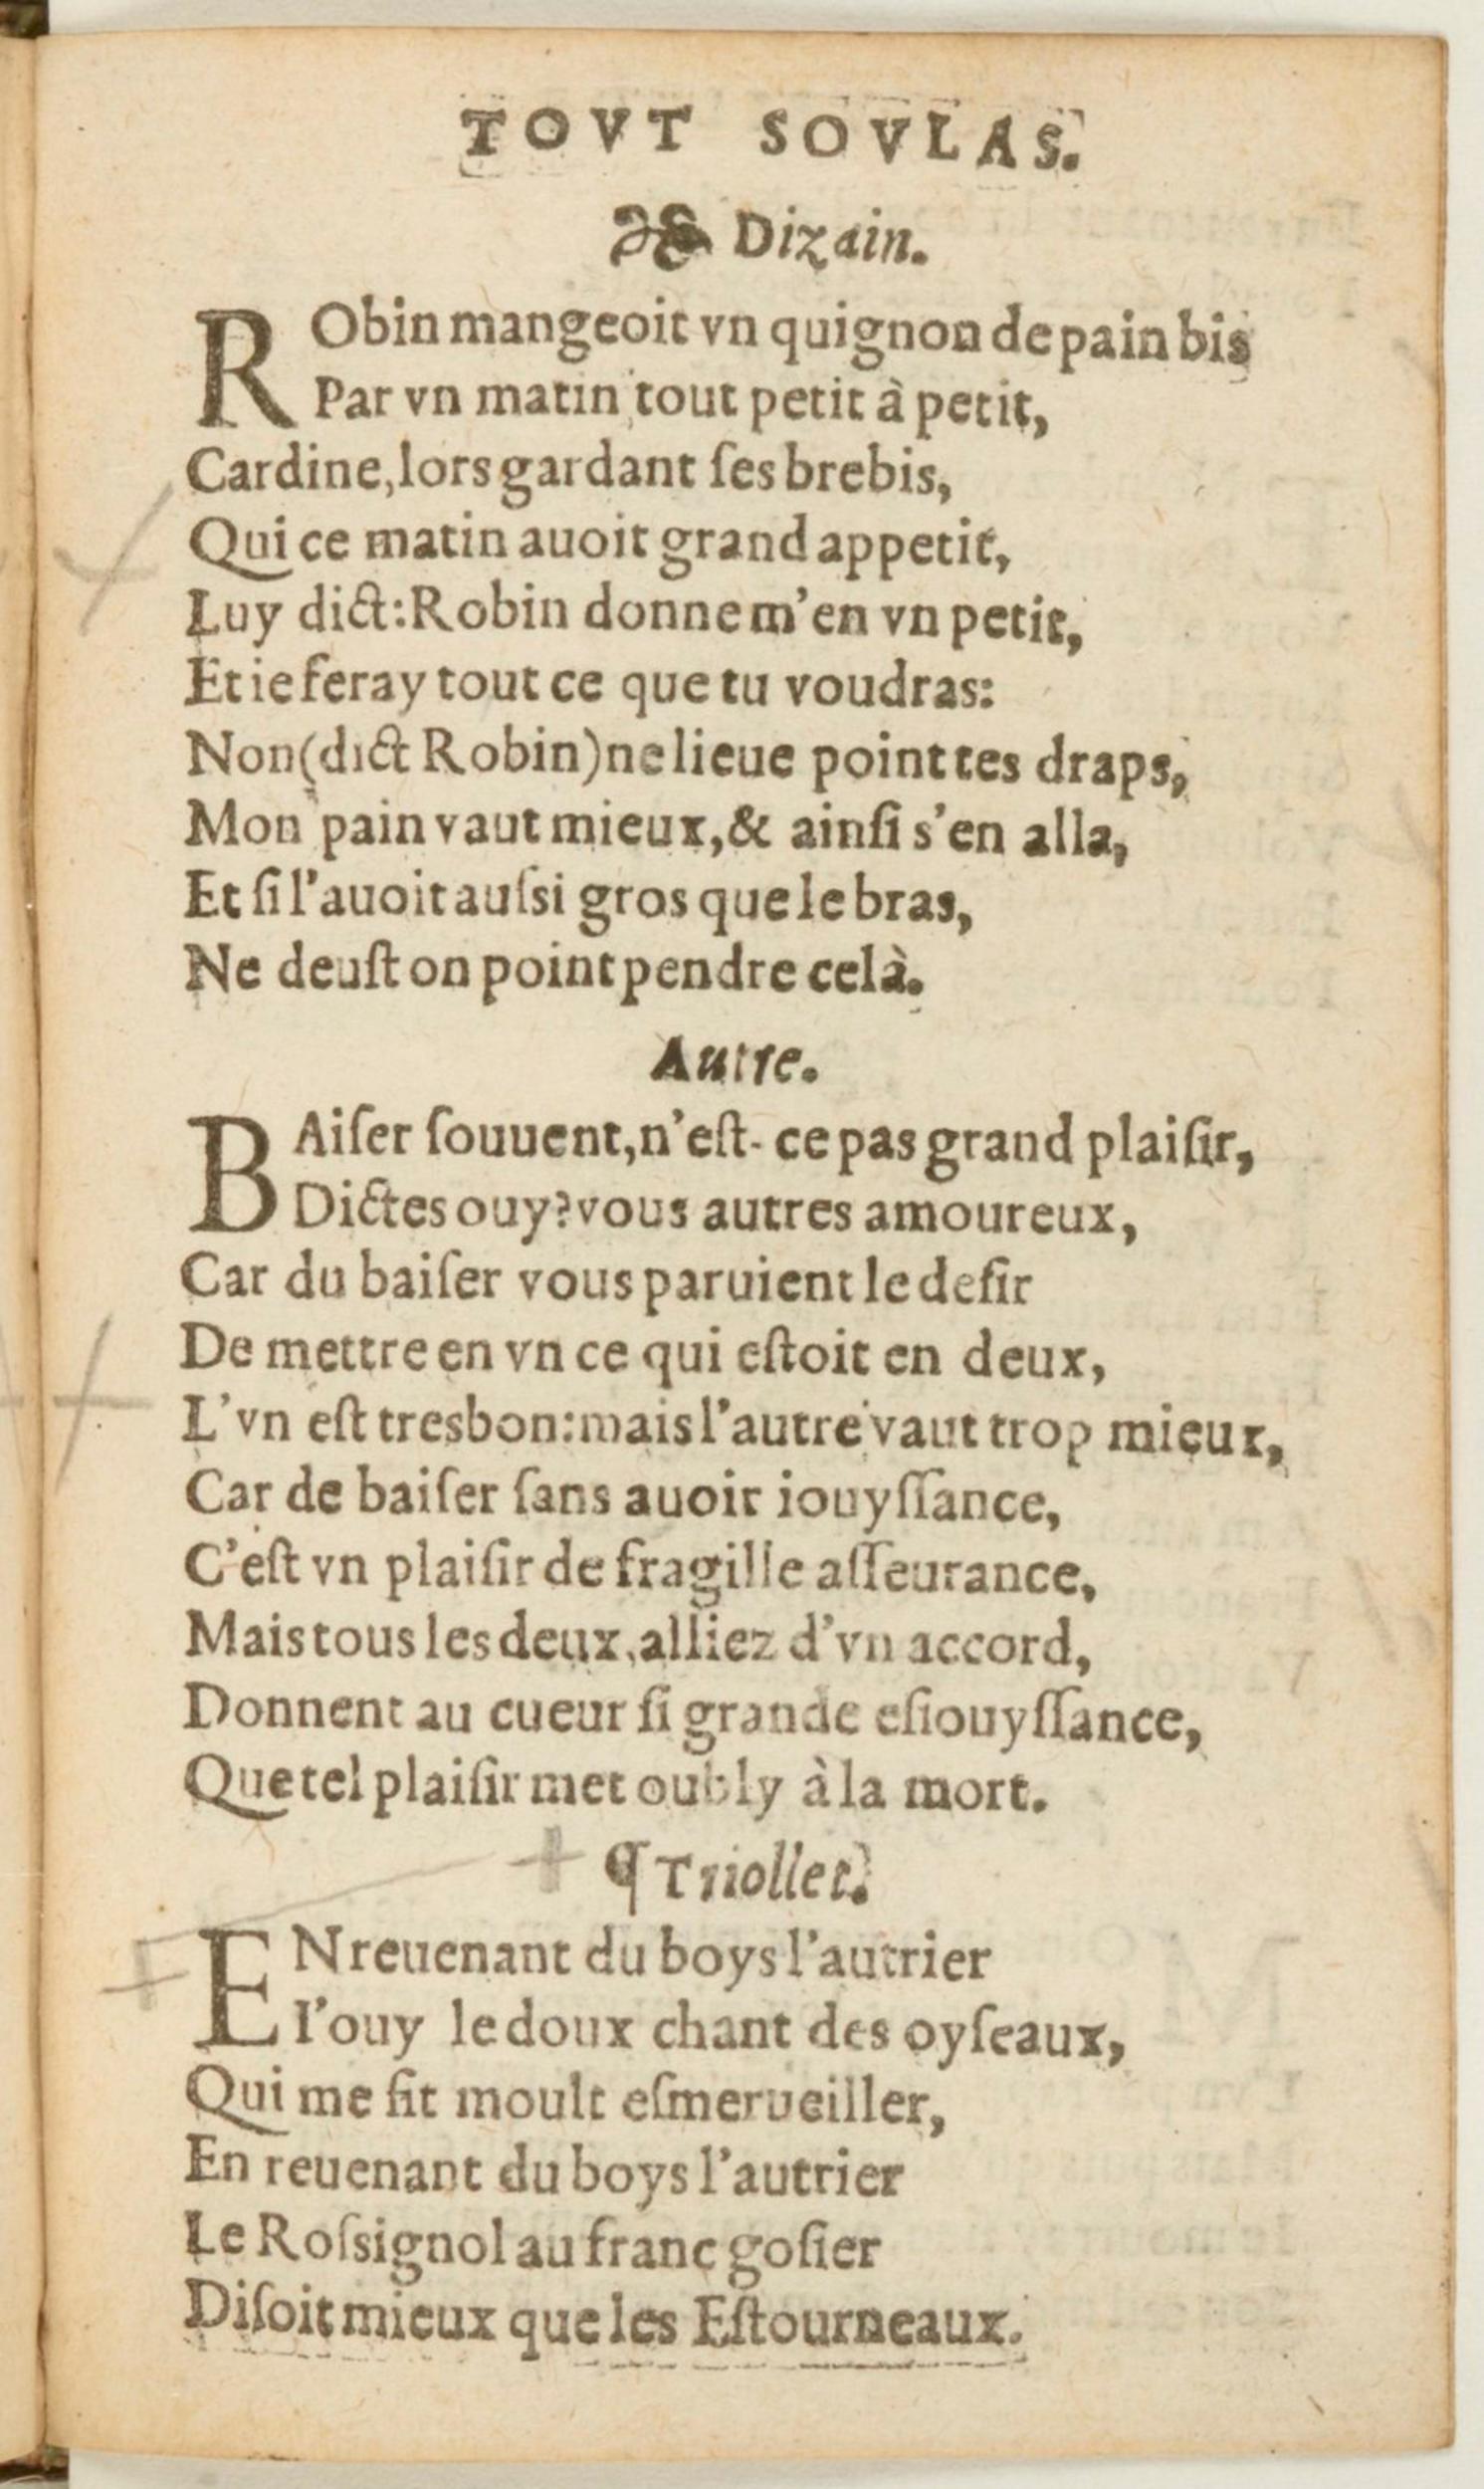 TOVT SOVLAS.
Dizain.
RObin mangeoit vn quignon de pain bis
Par vn matin tout petit à petit,
Cardine, lors gardant ſes brebis,
Qui ce matin auoit grand appetit,
Luy dict: Robin donne m'en vn petit,
Et ie feray tout ce que tu voudras:
Non (dict Robin) ne lieue point tes draps,
Mon pain vaut mieux, & ainſi s'en alla,
Et ſi l'auoit auſsi gros que le bras,
Ne deuſt on point pendre celà.
Autre.
BAiſer ſouuent, n'eſt-ce pas grand plaiſir,
Dictes ouy? vous autres amoureux,
Car du baiſer vous paruient le deſir
De mettre en vn ce qui eſtoit en deux,
L'vn eſt tresbon: mais l'autre vaut trop mieux,
Car de baiſer ſans auoir iouyſſance,
C'eſt vn plaiſir de fragille aſſeurance,
Mais tous les deux, alliez d'vn accord,
Donnent au cueur ſi grande eſiouyſſance,
Que tel plaiſir met oubly à la mort.
¶ Triollet.
EN reuenant du boys l'autrier
I'ouy le doux chant des oyſeaux,
Qui me fit moult eſmerueiller,
En reuenant du boys l'autrier
Le Roſsignol au franc goſier
Diſoit mieux que les Eſtourneaux.